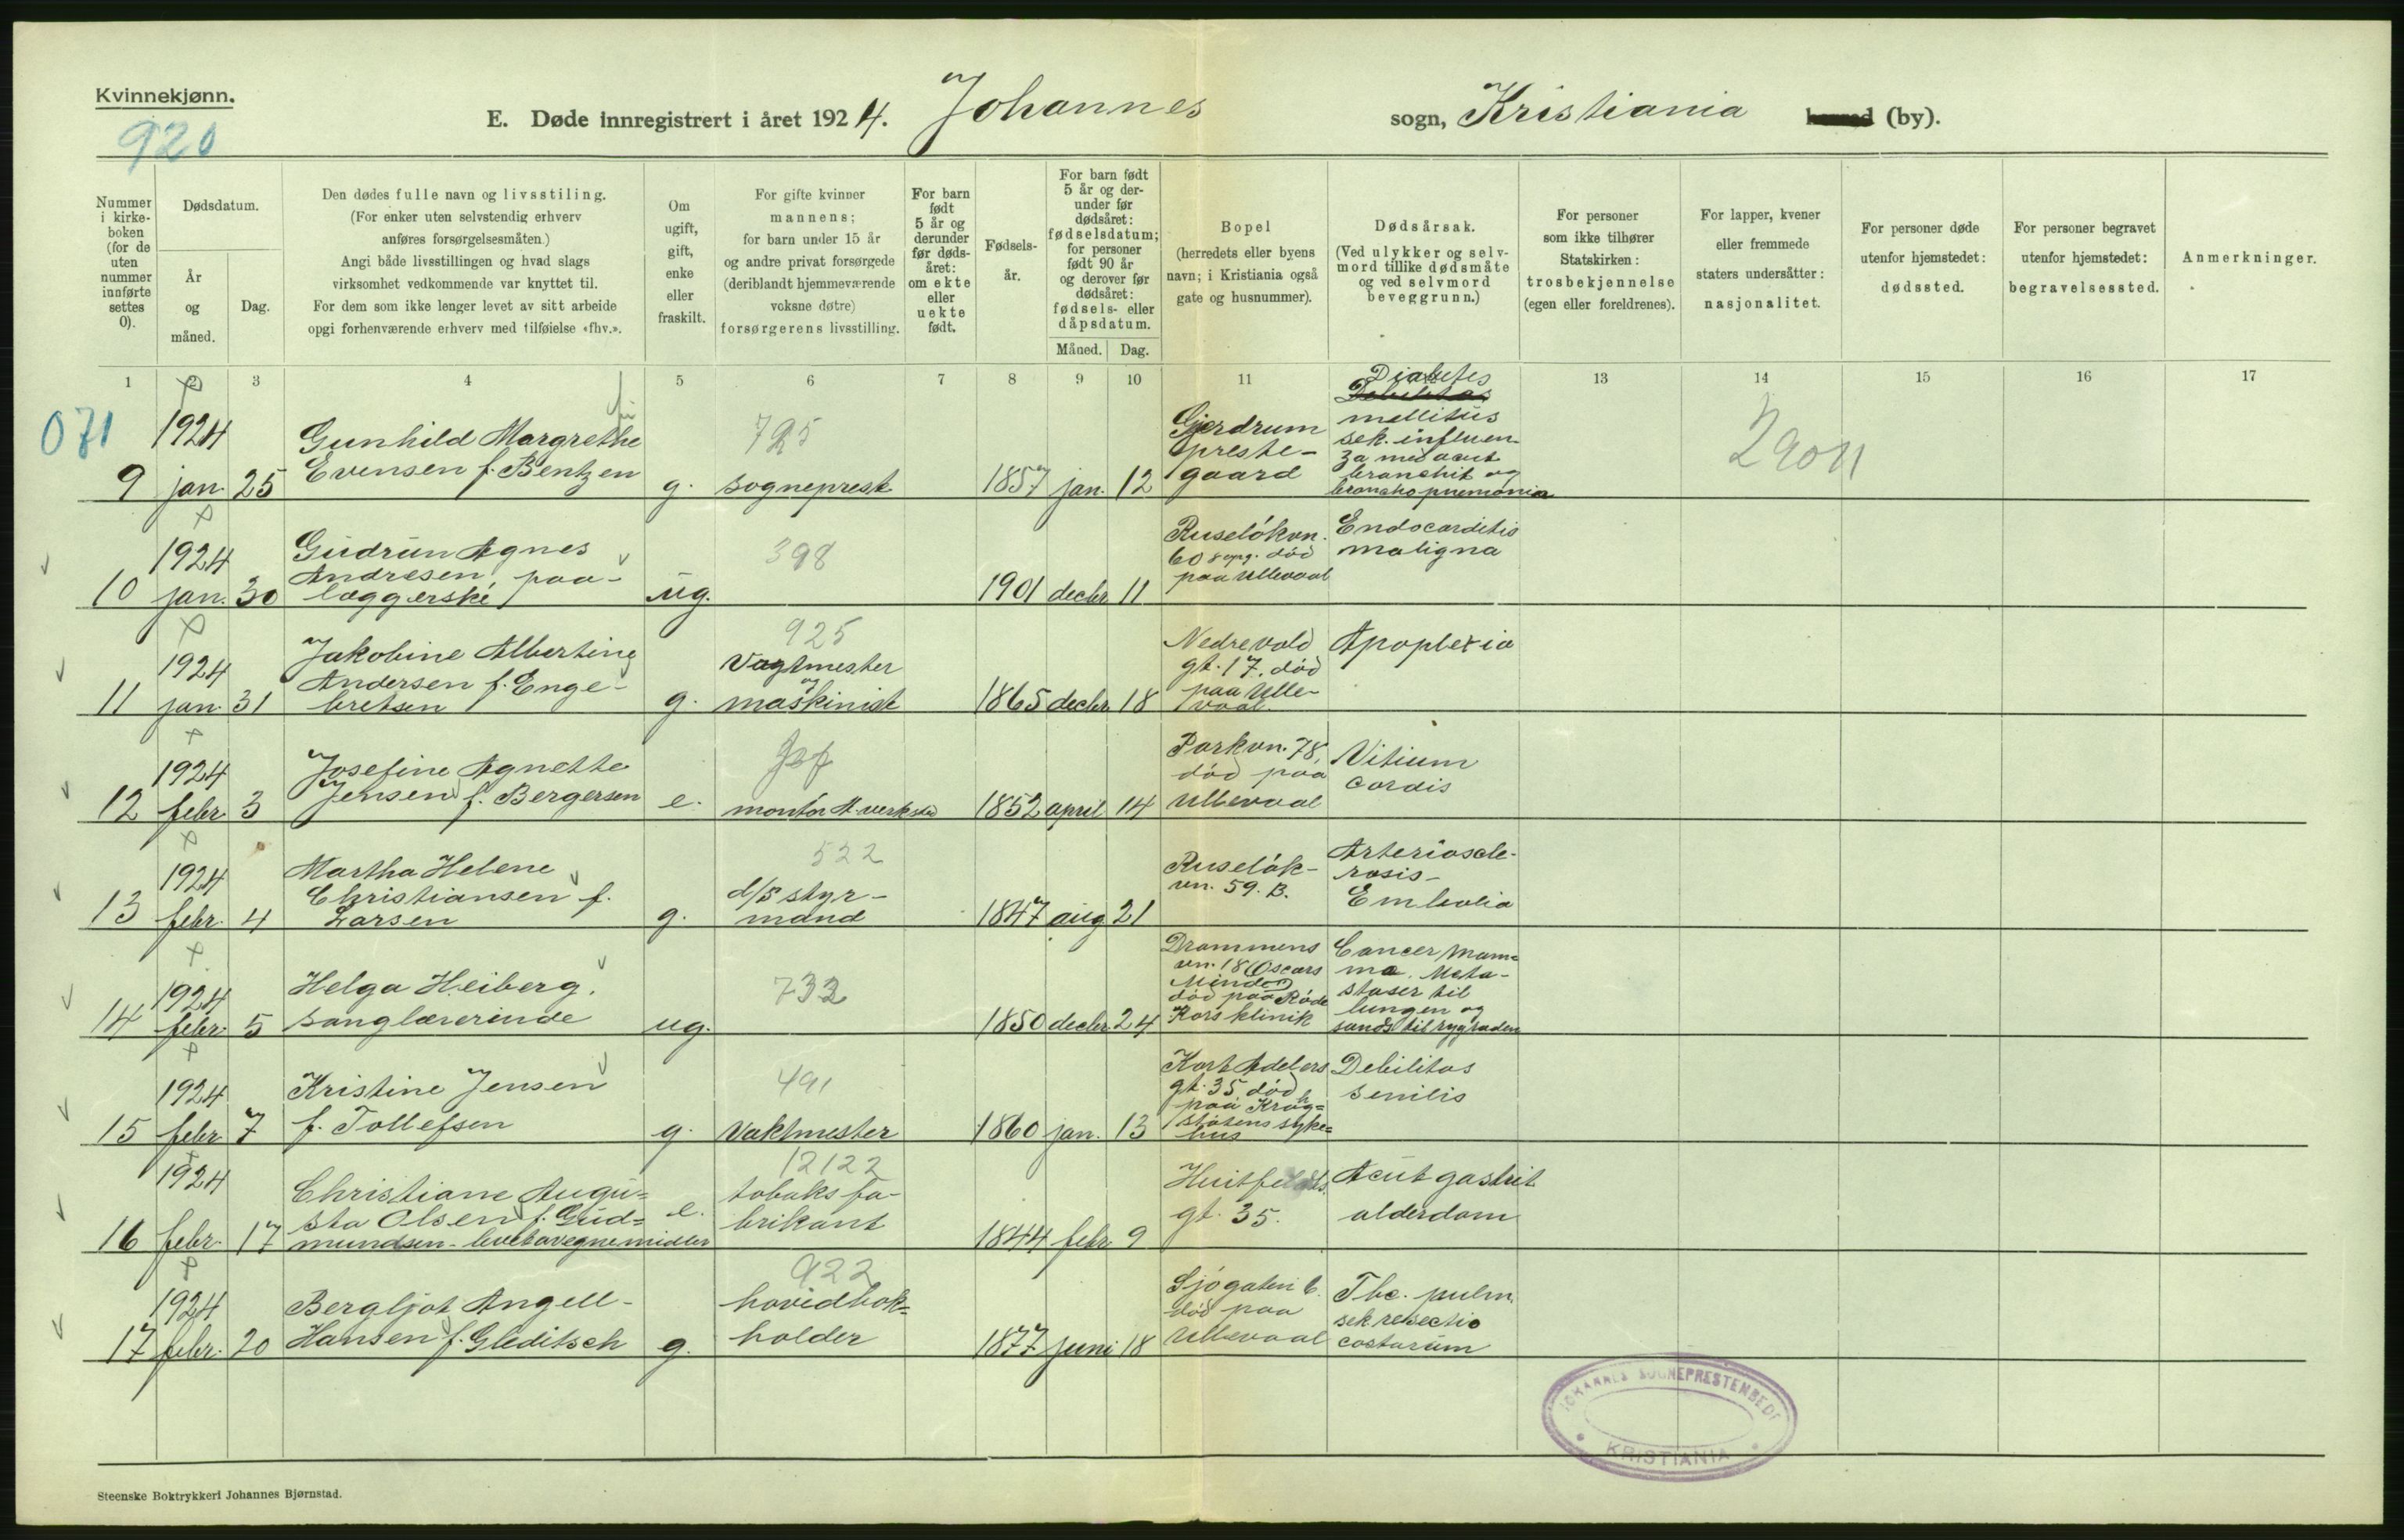 Kvinnekjønn.
920
E. Døde innregistrert i året 1924. Johannes sogn, Kristiania herred (by).
Nummer i kirkeboken (for de uten nummer innførte settes 0).
Dødsdatum.
År og måned.
Dag.
Den dødes fulle navn og livsstiling.
(For enker uten selvstendig erhverv
anføres forsørgelsesmåten.)
Angi både livsstillingen og hvad slags
virksomhet vedkommende var knyttet til.
For dem som ikke lenger levet av sitt arbeide
opgi forhenværende erhverv med tilføielse «fhv.».
Om
ugift,
gift,
enke
eller
fraskilt.
For gifte kvinner
mannens;
for barn under 15 år
og andre privat forsørgede
(deriblandt hjemmeværende
voksne døtre)
forsørgerens livsstilling.
For barn
født
5 år og
derunder
før døds-
året:
om ekte
eller
uekte
født.
Fødsels-
år.
For barn født
5 år og der-
under før
dødsåret:
fødselsdatum;
for personer
født 90 år
og derover før
dødsåret:
fødsels- eller
dåpsdatum.
Måned. Dag.
Bopel
(herredets eller byens
navn; i Kristiania også
gate og husnummer).
Dødsårsak.
(Ved ulykker og selv-
mord tillike dødsmåte
og ved selvmord
beveggrunn.)
For personer
som ikke tilhører
Statskirken:
trosbekjennelse
(egen eller foreldrenes).
For lapper, kvener
eller fremmede
staters undersåtter:
nasjonalitet.
For personer døde
utenfor hjemstedet:
dødssted.
For personer begravet
utenfor hjemstedet:
begravelsessted.
Anmerkninger.
1 2 3 4 5 6 7 8 9 10 11 12 13 14 15 16 17
071
9 1924 jan. 25
Gunhild Margrethe
Evensen f. Bentzen
g.
725
sogneprest
1857 jan. 12
Gjerdrum
preste-
gaard
Diabetes
Debilitas
mellitus
sek. influen-
za med acut
bronchit og
bronchopnemonia
2901
10 1924 jan. 30
Gudrun Agnes
Andresen, paa-
læggerske
ug.
398
1901 decbr. 11
Ruseløkvn.
60 8 opg. død
paa Ullevaal
Endocarditis
maligna
11 1924 jan. 31
Jakobine Albertine
Andersen f. Enge-
bretsen
g.
925
Vagtmester
og
maskinist
1865 decbr. 18
Nedrevold
gt. 17. død
paa Ulle-
vaal.
Apoplexia
12 1924 febr. 3
Josefine Agnette
Jensen f. Bergersen
e.
montør A. verksted
1852 april 14
Parkvn. 78,
død paa
Ullevaal
Vitium
cordis
13 1924 febr. 4
Martha Helene
Christiansen f.
Larsen
g.
522
d/s styr-
mand
1847 aug 21
Ruseløk-
vn. 59. B.
Arterioscle-
rosis-
Embolia
14 1924 febr. 5
Helga Heiberg,
sanglærerinde
ug.
732
1850 decbr. 24
Drammens
vn. 18 (Oscars
Minde)
død paa Røde
Kors klinik
Cancer Mam-
ma. Meta-
staser til
lungen og
samt til rygraden
15 1924 febr. 7
Kristine Jensen
f. Tollefsen
g.
491
Vaktmester
1860 jan. 13
Kort Adelers
gt. 35 død
paa Krog-
støtens syke-
hus
Debilitas
senilis
16 1924 febr. 17
Christiane Augu-
sta Olsen f. Gud-
mundsen - levet av egne midler
e.
12122
tobaksfa-
brikant
1844 febr. 9
Huitfeldts
gt. 35.
Acut gastrit
alderdom
17 1924 febr. 20
Bergljot Angell-
Hansen f. Gleditsch
g.
922
hovedbok-
holder
1877 juni 18
Sjøgaten 6.
død paa
Ullevaal
Tbc. pulm.
sek resectio
costarum
JOHANNES SOGNEPRESTEMBEDE
KRISTIANIA
Steenske Boktrykkeri Johannes Bjørnstad.